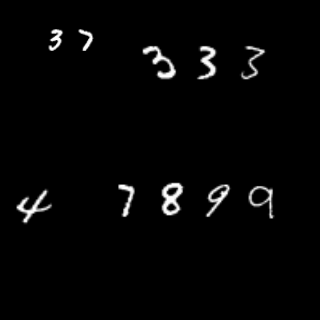 37 333
4 7899